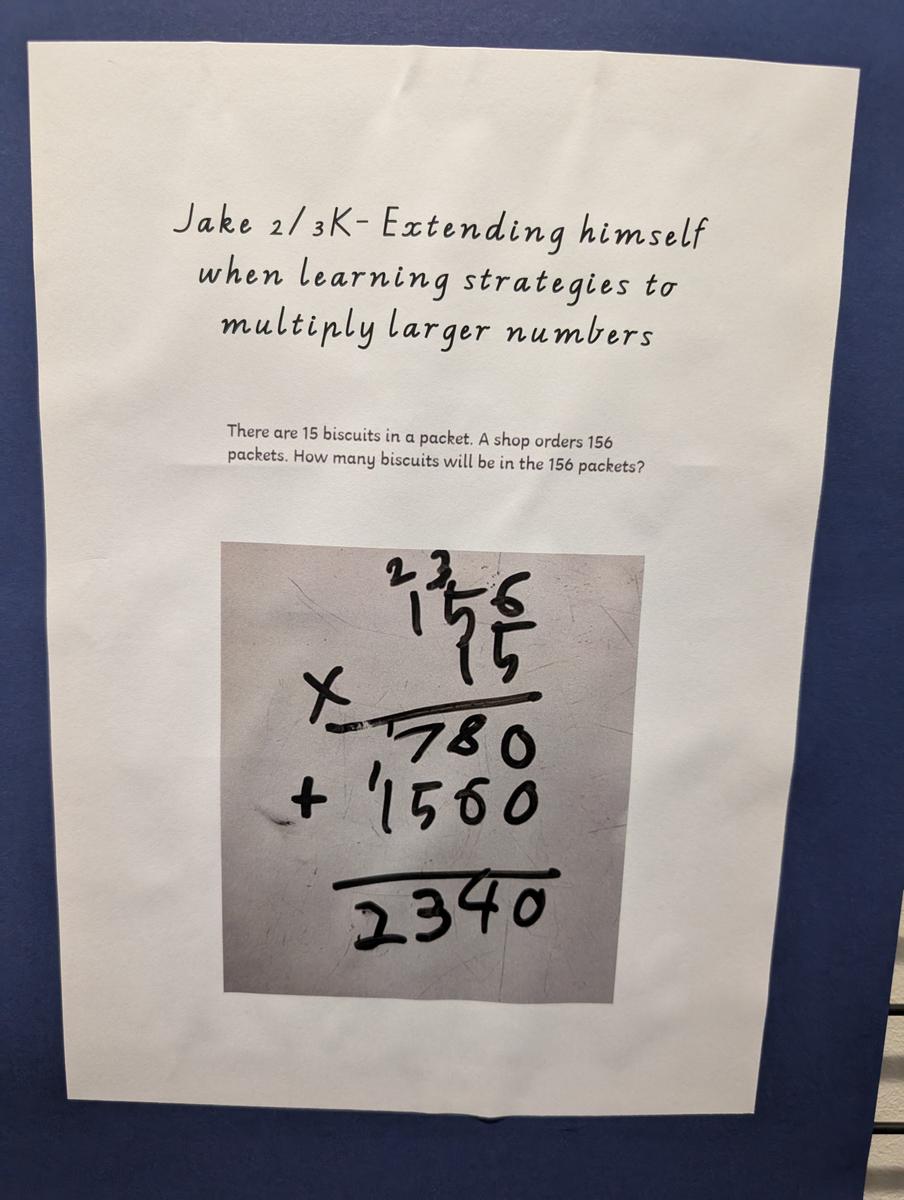 Jake 2/3K- Extending himself
when learning strategies to
multiply larger numbers
There are 15 biscuits in a packet. A shop orders 156
packets. How many biscuits will be in the 156 packets?
2 3
156
x 15
1780
+ 11560
2340